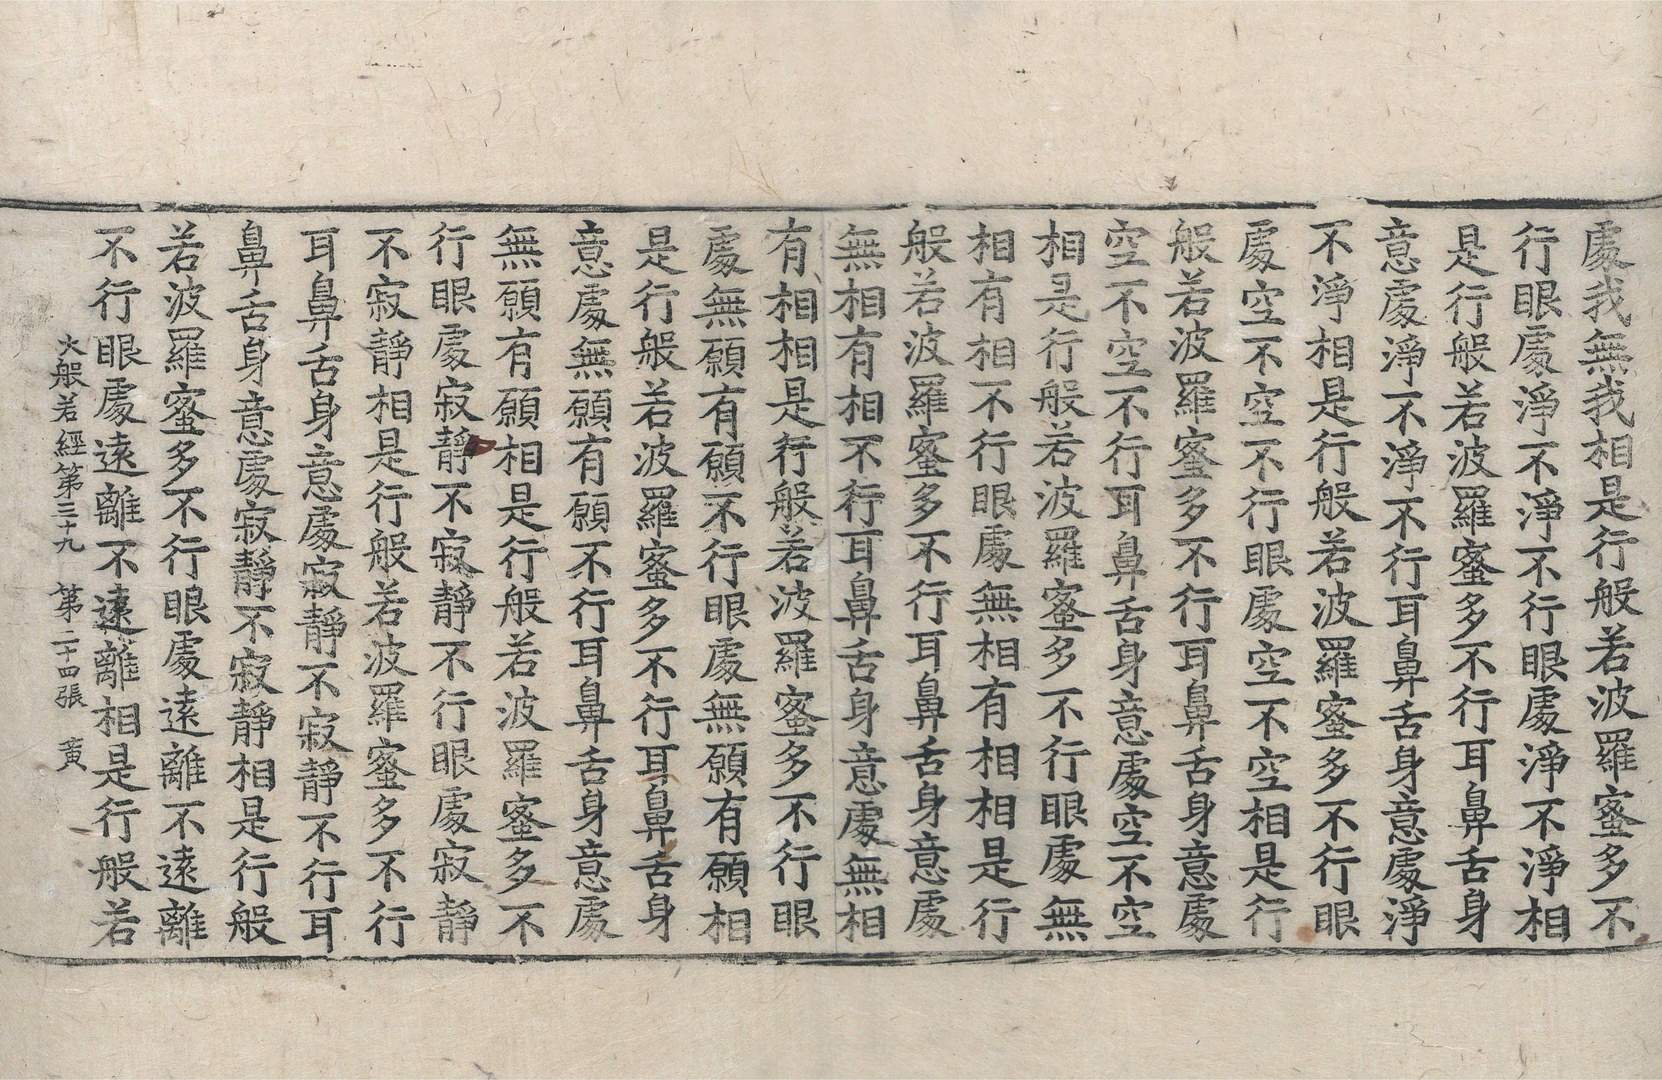 處我無我相是行般若波羅蜜多不
行眼處淨不淨不行眼處淨不淨相
是行般若波羅蜜多不行耳鼻舌身
意處淨不淨不行耳鼻舌身意處淨
不淨相是行般若波羅蜜多不行眼
處空不空不行眼處空不空相是行
般若波羅蜜多不行耳鼻舌身意處
空不空不行耳鼻舌身意處空不空
相是行般若波羅蜜多不行眼處無
相有相不行眼處無相有相相是行
般若波羅蜜多不行耳鼻舌身意處
無相有相不行耳鼻舌身意處無相
有相相是行般若波羅蜜多不行眼
處無願有願不行眼處無願有願相
是行般若波羅蜜多不行耳鼻舌身
意處無願有願不行耳鼻舌身意處
無願有願相是行般若波羅蜜多不
行眼處寂靜不寂靜不行眼處寂靜
不寂靜相是行般若波羅蜜多不行
耳鼻舌身意處寂靜不寂靜不行耳
鼻舌身意處寂靜不寂靜相是行般
若波羅蜜多不行眼處遠離不遠離
不行眼處遠離不遠離相是行般若
大般若經第三十九 第二十四張 黃